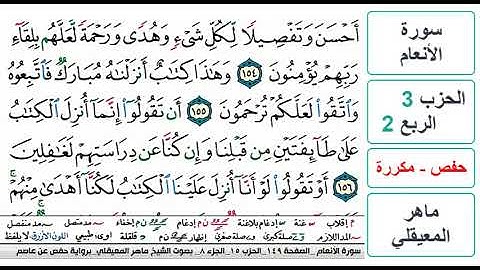 أَحْسَنَ وَتَفْصِيلًا لِّكُلِّ شَىْءٍ وَهُدًى وَرَحْمَةً لَّعَلَّهُم بِلِقَآءِ
رَبِّهِمْ يُؤْمِنُونَ ١٥٤ وَهَٰذَا كِتَٰبٌ أَنزَلْنَٰهُ مُبَارَكٌ فَٱتَّبِعُوهُ
وَٱتَّقُوا۟ لَعَلَّكُمْ تُرْحَمُونَ ١٥٥ أَن تَقُولُوٓا۟ إِنَّمَآ أُنزِلَ ٱلْكِتَٰبُ
عَلَىٰ طَآئِفَتَيْنِ مِن قَبْلِنَا وَإِن كُنَّا عَن دِرَاسَتِهِمْ لَغَٰفِلِينَ
١٥٦ أَوْ تَقُولُوا۟ لَوْ أَنَّآ أُنزِلَ عَلَيْنَا ٱلْكِتَٰبُ لَكُنَّآ أَهْدَىٰ مِنْهُمْ
سورة
الأنعام
الحزب 3
الربع 2
حفص - مكررة
ماهر
المعيقلي
سورة الأنعام _ الصفحة ١٤٩_ الحزب ١٥_ الجزء ٨_ بصوت الشيخ ماهر المعيقلي_ برواية حفص عن عاصم